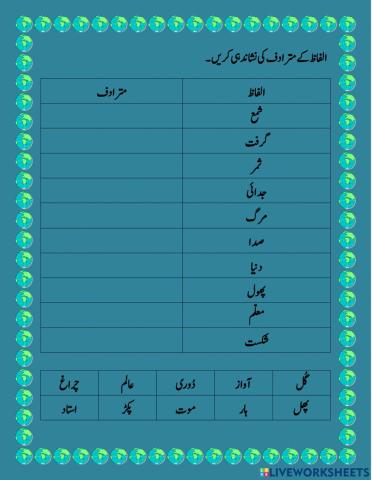 الفاظ کے مترادف کی نشاندہی کریں۔
الفاظ مترادف
شمع
گرفت
ثمر
جدائی
مرگ
صدا
دنیا
پھول
معلّم
شکست
گُل آواز دُوری عالم چراغ
پھل ہار موت پکڑ استاد
LIVEWORKSHEETS